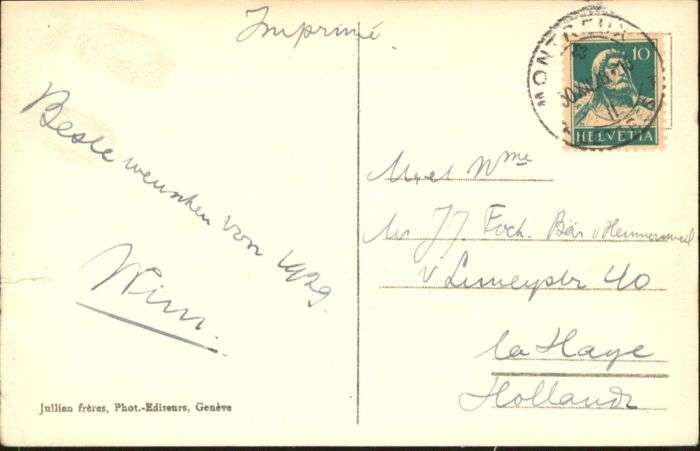 Imprimé.
MONTREUX
10
HELVETIA
Beste wenschen voor 1929.
Wim.
M. et Mme
JJ. Fock. Bär v Hemmersweil
40
La Haye
Hollande
Jullien frères, Phot.-Editeurs, Genève